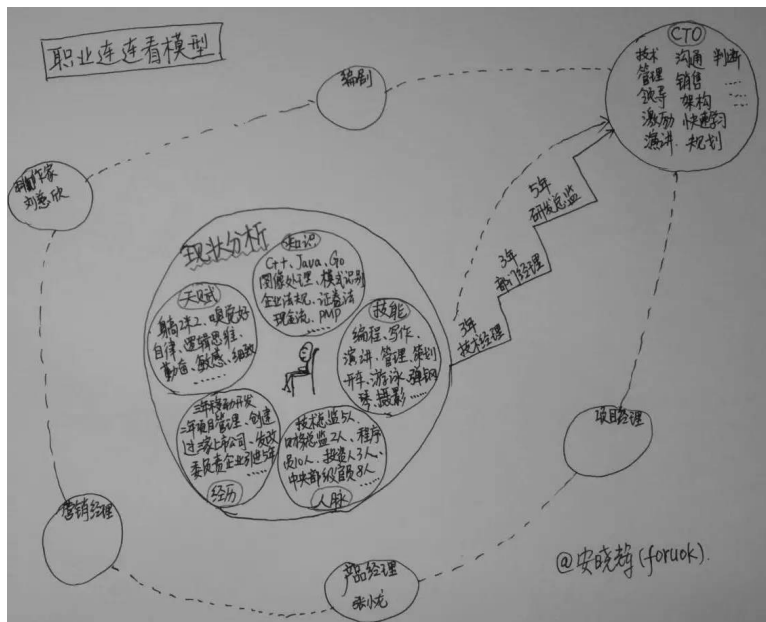 职业连连看模型
编剧
CTO
技术 沟通 判断
管理 销售 ……
领导 架构 ……
激励 快速学习
演讲 规划
作家
刘慈欣
5年
研发总监
3年
部门经理
3年
技术经理
现状分析
知识
C++、Java、Go
图像处理、模式识别
企业法规、证券法
现金流、PMP
……
天赋
身高2米2、嗅觉好
自律、逻辑思维、
勤奋、敏感、细致
……
技能
编程、写作、
演讲、管理、策划
开车、游泳、弹钢
琴、摄影……
三年移动开发
二年项目管理、创建
过三家上市公司、发改
委负责企业引进5年
……
经历
技术总监5人、
总监2人、程序
员10人、投资人3人、
中央部级官员8人
……
人脉
项目经理
营销经理
产品经理
张小龙
@安晓辉(foruok).